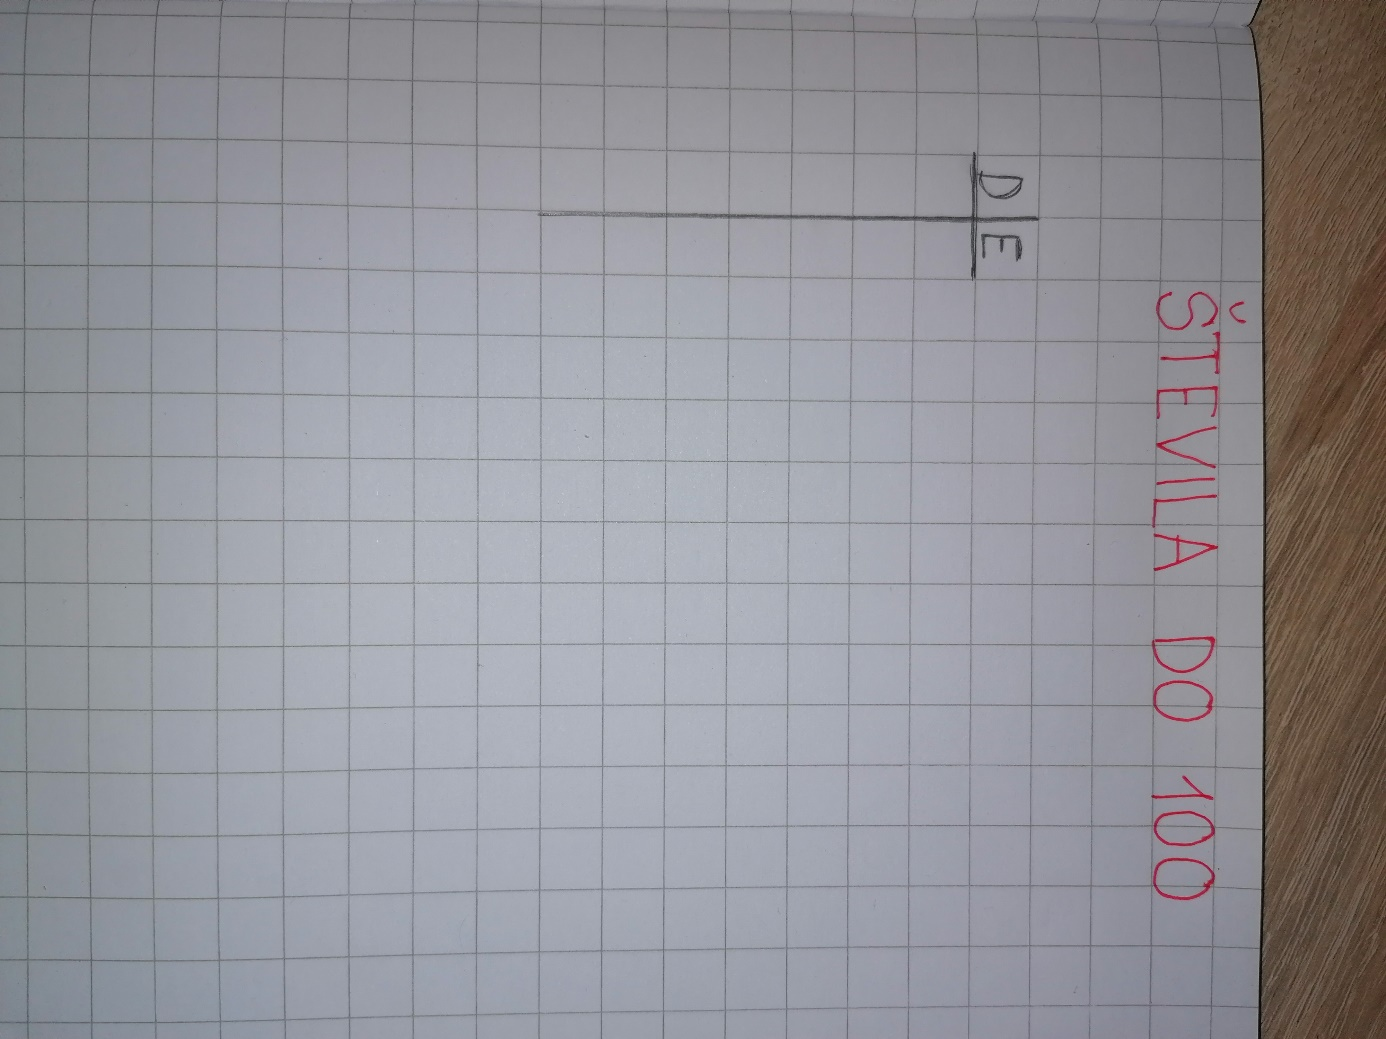 ŠTEVILA DO 100
D E